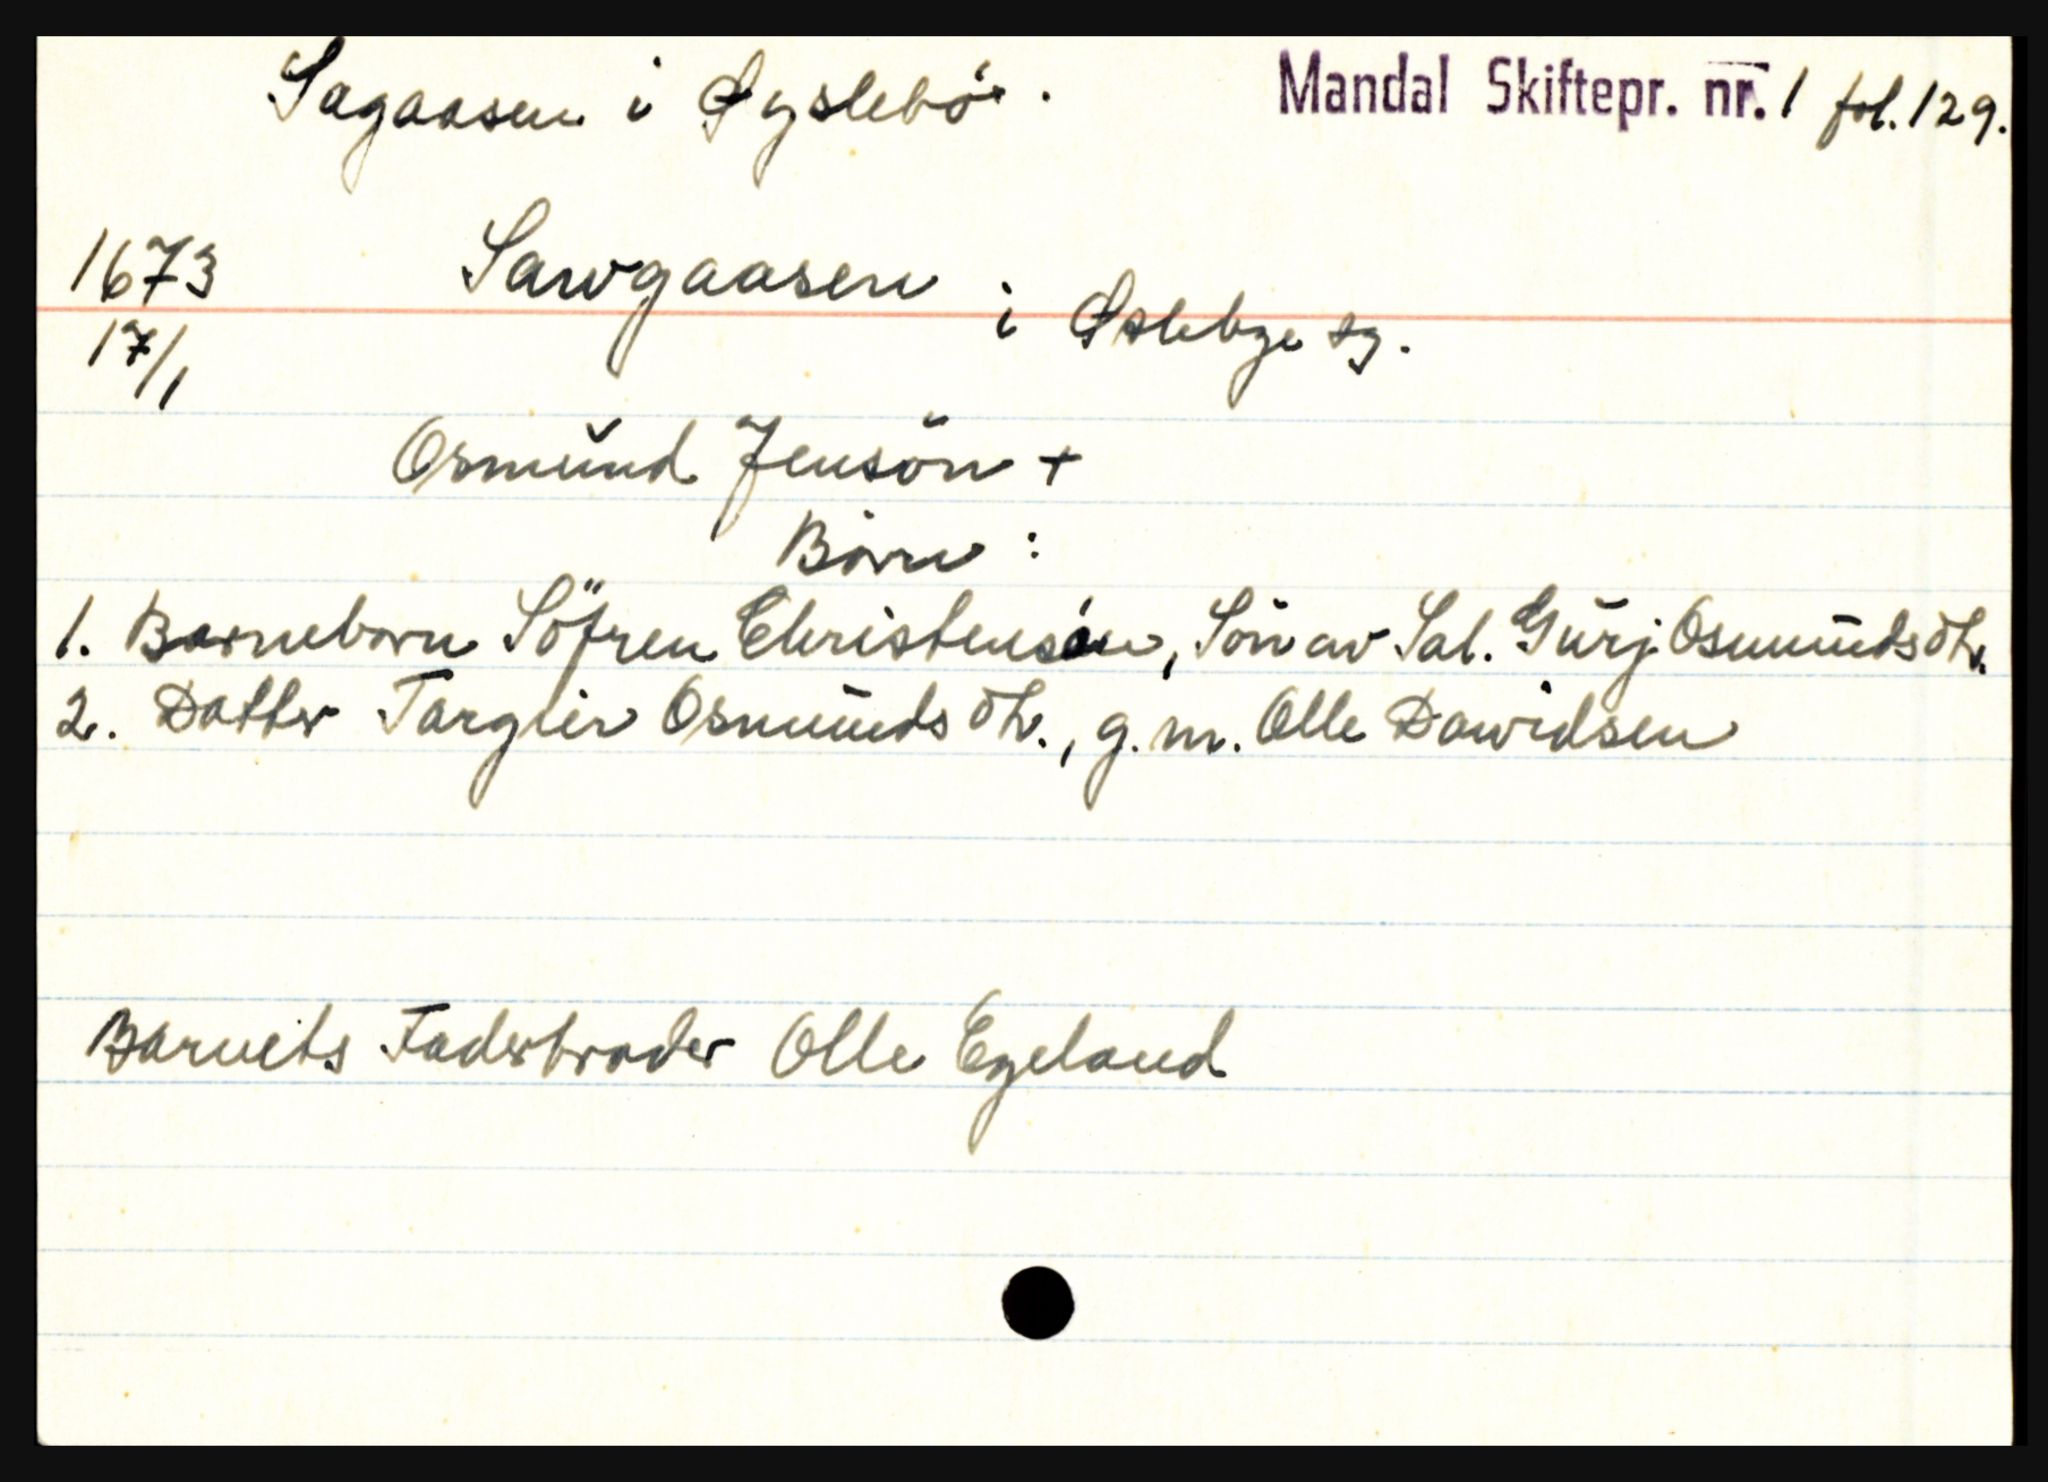 Sagaasen i Øyslebö. Mandal Skiftepr. nr. 1 fol. 129.
1673 Sawgaasen i Øslebye sg.
17/1
Osmŭnd Jensön +
Börn :
1. Barneborn Söfren Christensön, Sön av Sal. Gŭrj Osmŭndsdtr.
2. Datter Targier Osmŭndsdtr., g. m. Olle Dawidsen
Barnets Faderbroder Olle Egeland